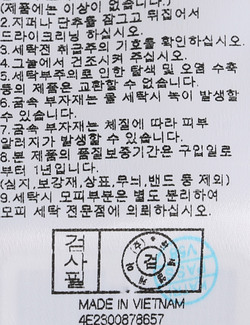 (제품에는 이상이 없습니다.)
2.지퍼나 단추를 잠그고 뒤집어서
드라이크리닝 하십시오.
3.세탁전 취급주의 기호를 확인하십시오.
4.그늘에서 건조시켜 주십시오.
5.세탁부주의로 인한 탈색 및 오염 수축
등의 제품은 교환할 수 없습니다.
6.금속 부자재는 물 세탁시 녹이 발생할
수 있습니다.
7.금속 부자재는 체질에 따라 피부
알러지가 발생할 수 있습니다.
8.본 제품의 품질보증기간은 구입일로
부터 1년입니다.
(심지,보강재,상표,무늬,밴드 등 제외)
9.세탁시 모피부분은 별도 분리하여
모피 세탁 전문점에 의뢰하십시오.
검사필
검
MADE IN VIETNAM
4E2300878657